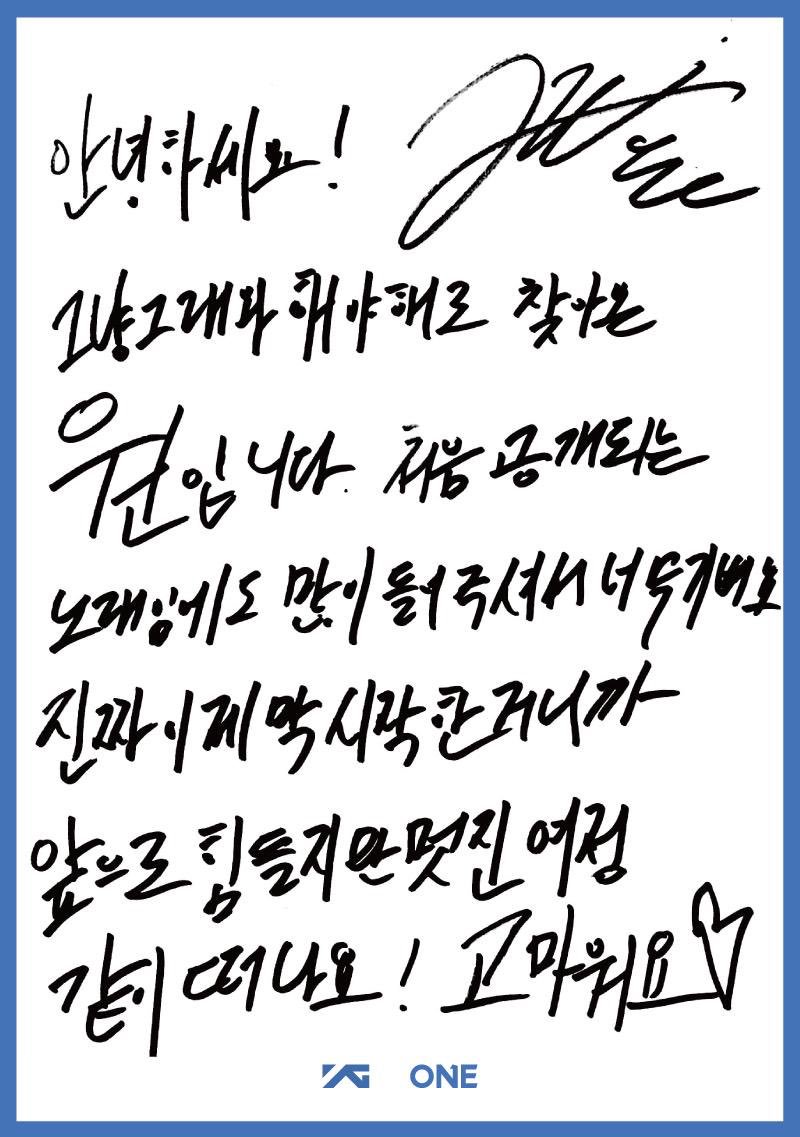 안녕하세요!
그냥그래와 해야해로 찾아온
원입니다. 처음 공개되는
노래임에도 많이 들어주셔서 너무기뻐요
진짜 이제 막 시작한거니까
앞으로 힘들지만 멋진 여정
같이 떠나요! 고마워요
YG ONE